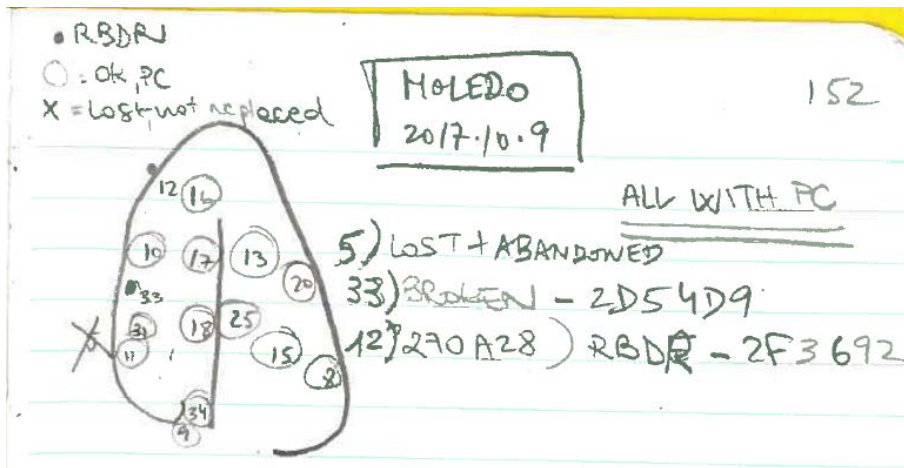 • RBDRN
○ = OK, PC
X = Lost, not replaced
MOLEDO
2017.10.9
152
ALL WITH PC
12 16
10 17 13
20
33
31 18 25
11 15
8
34
9
5) LOST + ABANDONED
33) BROKEN - 2D54D9
12) 270A28) RBDR - 2F3692